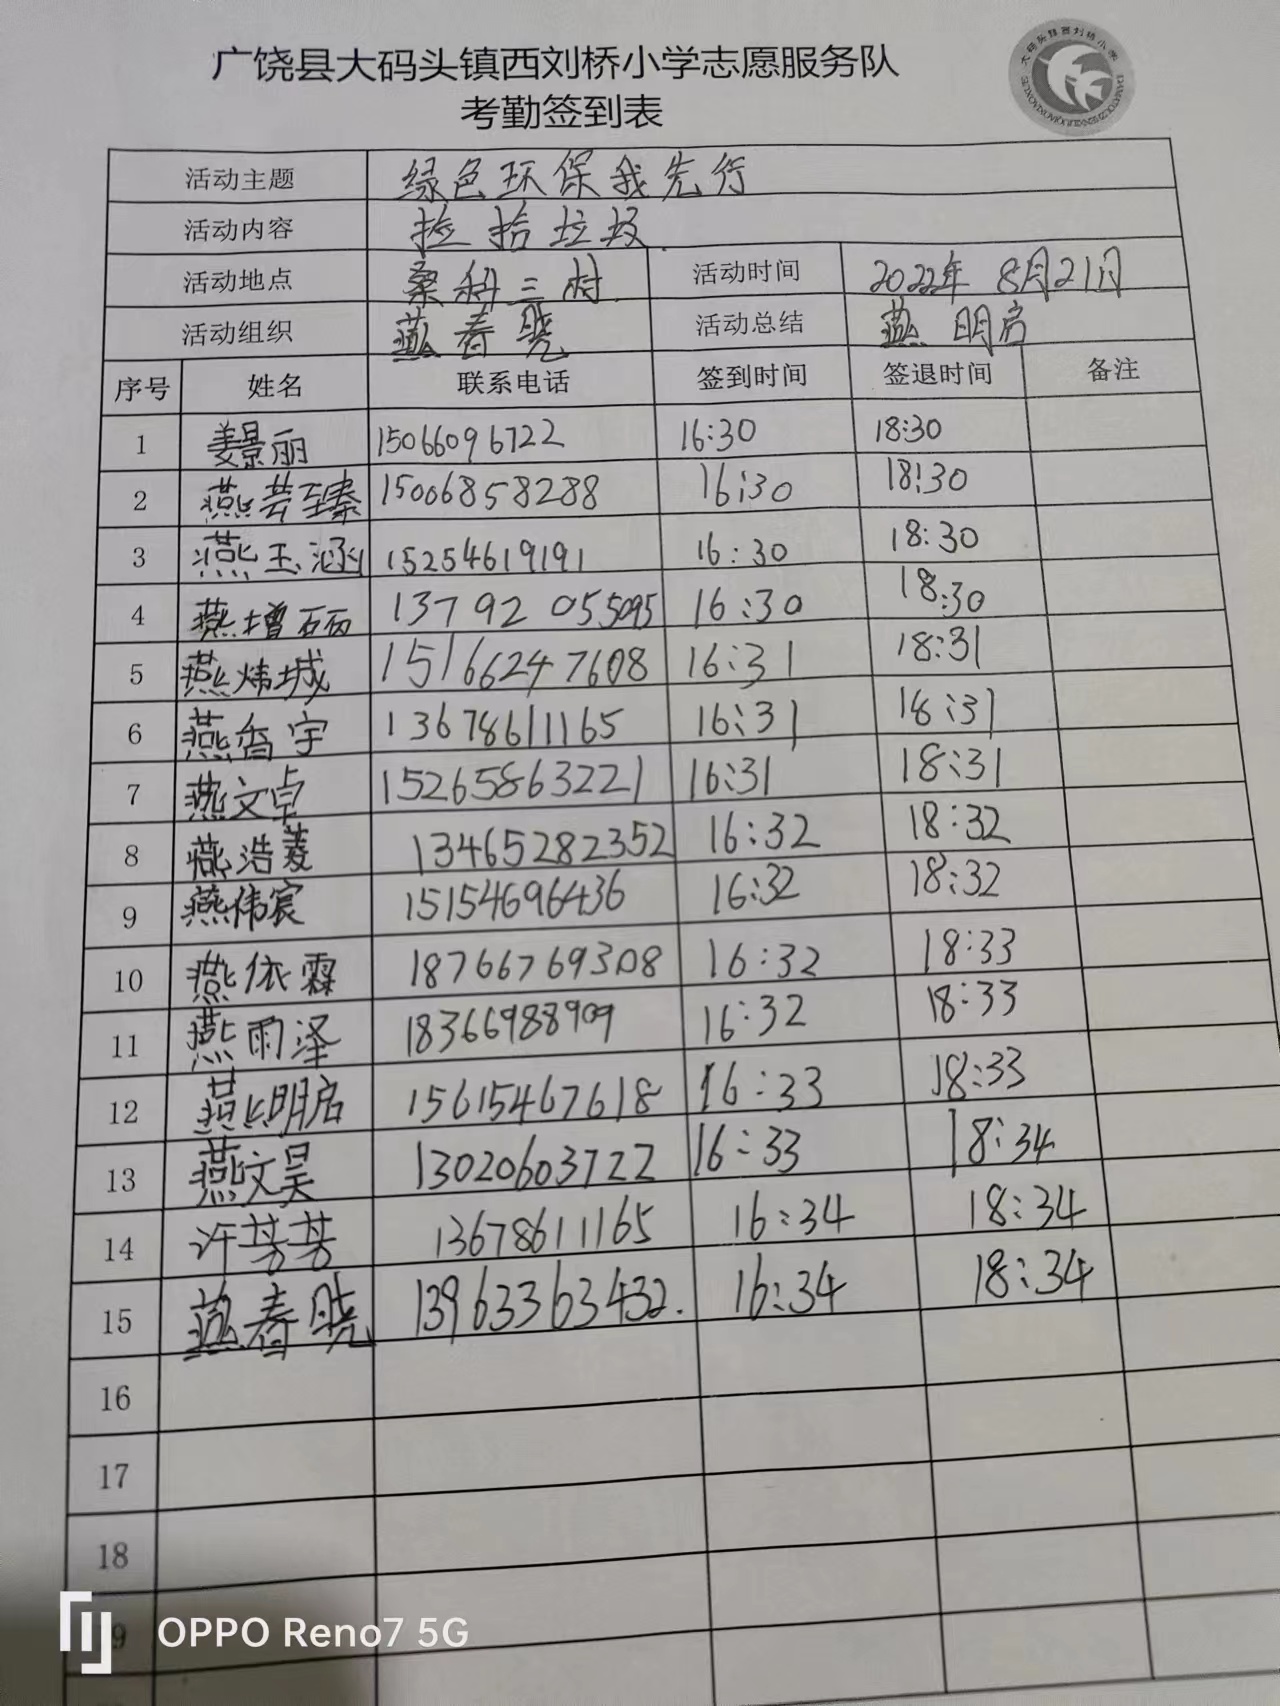 广饶县大码头镇西刘桥小学志愿服务队
考勤签到表
活动主题 绿色环保我先行
活动内容 捡拾垃圾.
活动地点 桑科三村. 活动时间 2022年 8月21日
活动组织 燕春晓 活动总结 燕明启
序号 姓名 联系电话 签到时间 签退时间 备注
1 姜景丽 15066096722 16:30 18:30
2 燕芸臻 15006858288 16:30 18:30
3 燕玉涵 15254619191 16:30 18:30
4 燕增硕 13792055095 16:30 18:30
5 燕炜城 15166247608 16:31 18:31
6 燕裔宇 13678611165 16:31 18:31
7 燕文卓 15265863221 16:31 18:31
8 燕浩菱 13465282352 16:32 18:32
9 燕伟宸 15154696436 16:32 18:32
10 燕依霖 18766769308 16:32 18:33
11 燕雨泽 18366988909 16:32 18:33
12 燕明启 15615467618 16:33 18:33
13 燕文昊 13020603722 16:33 18:34
14 许芳芳 13678611165 16:34 18:34
15 燕春晓 13963363432. 16:34 18:34
16
17
18
9
OPPO Reno7 5G